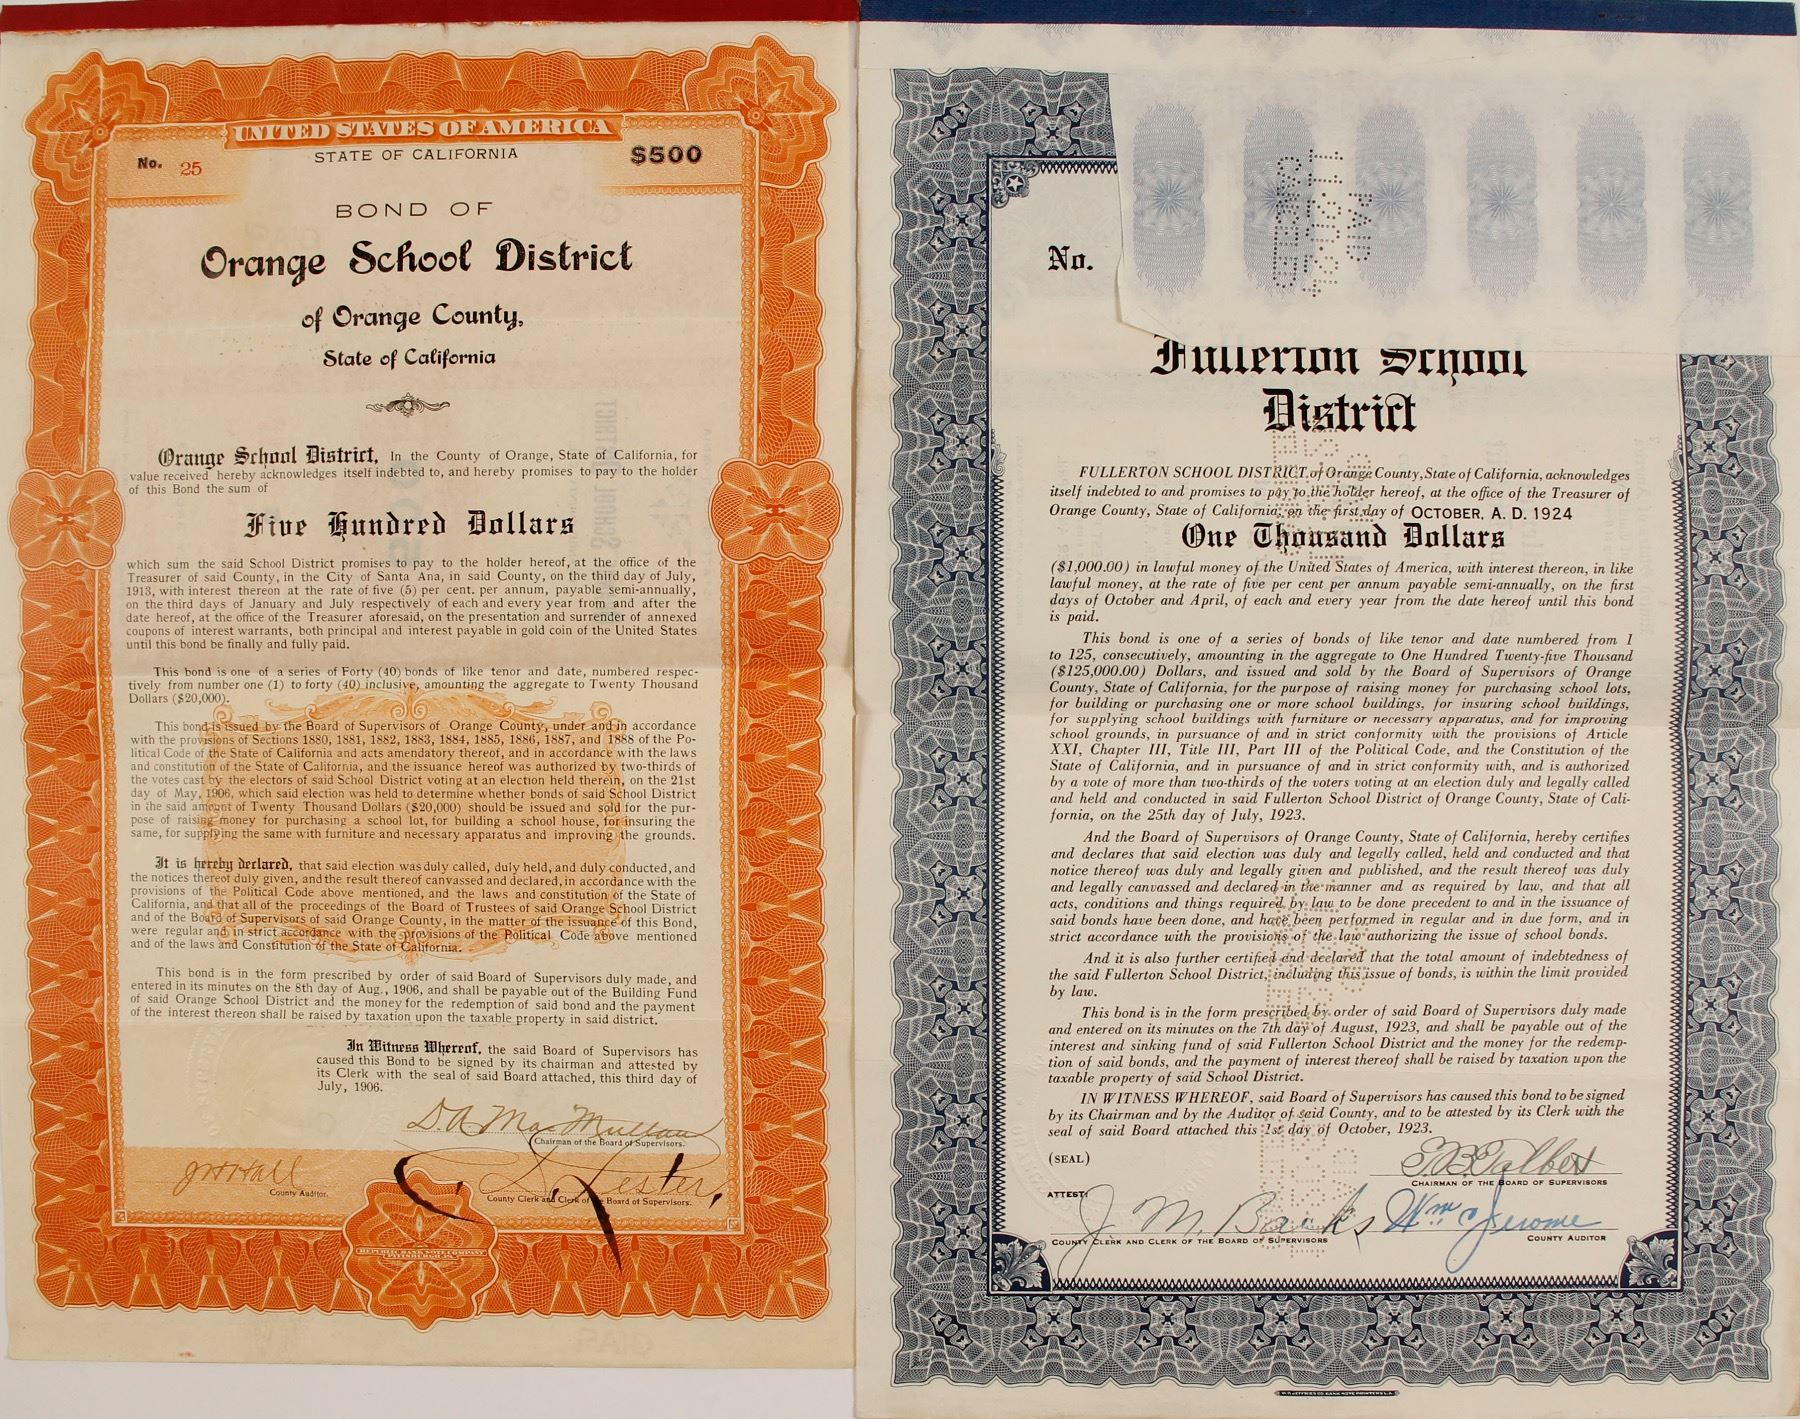 UNITED STATES OF AMERICA
No. 25
STATE OF CALIFORNIA
$500
BOND OF
Orange School District
of Orange County,
State of California
Orange School District, In the County of Orange, State of California, for
value received hereby acknowledges itself indebted to, and hereby promises to pay to the holder
of this Bond the sum of
Five Hundred Dollars
which sum the said School District promises to pay to the holder hereof, at the office of the
Treasurer of said County, in the City of Santa Ana, in said County, on the third day of July,
1913, with interest thereon at the rate of five (5) per cent. per annum, payable semi-annually,
on the third days of January and July respectively of each and every year from and after the
date hereof, at the office of the Treasurer aforesaid, on the presentation and surrender of annexed
coupons of interest warrants, both principal and interest payable in gold coin of the United States
until this bond be finally and fully paid.
This bond is one of a series of Forty (40) bonds of like tenor and date, numbered respec-
tively from number one (1) to forty (40) inclusive, amounting the aggregate to Twenty Thousand
Dollars ($20,000).
This bond is issued by the Board of Supervisors of Orange County, under and in accordance
with the provisions of Sections 1880, 1881, 1882, 1883, 1884, 1885, 1886, 1887, and 1888 of the Po-
litical Code of the State of California and acts amendatory thereof, and in accordance with the laws
and constitution of the State of California, and the issuance hereof was authorized by two-thirds of
the votes cast by the electors of said School District voting at an election held therein, on the 21st
day of May, 1906, which said election was held to determine whether bonds of said School District
in the said amount of Twenty Thousand Dollars ($20,000) should be issued and sold for the pur-
pose of raising money for purchasing a school lot, for building a school house, for insuring the
same, for supplying the same with furniture and necessary apparatus and improving the grounds.
It is hereby declared, that said election was duly called, duly held, and duly conducted, and
the notices thereof duly given, and the result thereof canvassed and declared, in accordance with the
provisions of the Political Code above mentioned, and the laws and constitution of the State of
California, and that all of the proceedings of the Board of Trustees of said Orange School District
and of the Board of Supervisors of said Orange County, in the matter of the issuance of this Bond,
were regular and in strict accordance with the provisions of the Political Code above mentioned
and of the laws and Constitution of the State of California.
This bond is in the form prescribed by order of said Board of Supervisors duly made, and
entered in its minutes on the 8th day of Aug., 1906, and shall be payable out of the Building Fund
of said Orange School District and the money for the redemption of said bond and the payment
of the interest thereon shall be raised by taxation upon the taxable property in said district.
In Witness Whereof, the said Board of Supervisors has
caused this Bond to be signed by its chairman and attested by
its Clerk with the seal of said Board attached, this third day of
July, 1906.
D. A. MacMullan
Chairman of the Board of Supervisors.
J W Hall
County Auditor.
C. D. Lester,
County Clerk and Clerk of the Board of Supervisors.
REPUBLIC BANK NOTE COMPANY
PITTSBURGH, PA.
No.
Fullerton School
District
FULLERTON SCHOOL DISTRICT, of Orange County, State of California, acknowledges
itself indebted to and promises to pay to the holder hereof, at the office of the Treasurer of
Orange County, State of California, on the first day of OCTOBER, A. D. 1924
One Thousand Dollars
($1,000.00) in lawful money of the United States of America, with interest thereon, in like
lawful money, at the rate of five per cent per annum payable semi-annually, on the first
days of October and April, of each and every year from the date hereof until this bond
is paid.
This bond is one of a series of bonds of like tenor and date numbered from 1
to 125, consecutively, amounting in the aggregate to One Hundred Twenty-five Thousand
($125,000.00) Dollars, and issued and sold by the Board of Supervisors of Orange
County, State of California, for the purpose of raising money for purchasing school lots,
for building or purchasing one or more school buildings, for insuring school buildings,
for supplying school buildings with furniture or necessary apparatus, and for improving
school grounds, in pursuance of and in strict conformity with the provisions of Article
XXI, Chapter III, Title III, Part III of the Political Code, and the Constitution of the
State of California, and in pursuance of and in strict conformity with, and is authorized
by a vote of more than two-thirds of the voters voting at an election duly and legally called
and held and conducted in said Fullerton School District of Orange County, State of Cali-
fornia, on the 25th day of July, 1923.
And the Board of Supervisors of Orange County, State of California, hereby certifies
and declares that said election was duly and legally called, held and conducted and that
notice thereof was duly and legally given and published, and the result thereof was duly
and legally canvassed and declared in the manner and as required by law, and that all
acts, conditions and things required by law to be done precedent to and in the issuance of
said bonds have been done, and have been performed in regular and in due form, and in
strict accordance with the provisions of the law authorizing the issue of school bonds.
And it is also further certified and declared that the total amount of indebtedness of
the said Fullerton School District, including this issue of bonds, is within the limit provided
by law.
This bond is in the form prescribed by order of said Board of Supervisors duly made
and entered on its minutes on the 7th day of August, 1923, and shall be payable out of the
interest and sinking fund of said Fullerton School District and the money for the redemp-
tion of said bonds, and the payment of interest thereof shall be raised by taxation upon the
taxable property of said School District.
IN WITNESS WHEREOF, said Board of Supervisors has caused this bond to be signed
by its Chairman and by the Auditor of said County, and to be attested by its Clerk with the
seal of said Board attached this 1st day of October, 1923.
(SEAL)
T. B. Talbert
CHAIRMAN OF THE BOARD OF SUPERVISORS
ATTEST:
J. M. Backs
COUNTY CLERK AND CLERK OF THE BOARD OF SUPERVISORS
Wm C Jerome
COUNTY AUDITOR
W. P. JEFFRIES CO. BANK NOTE PRINTERS L.A.